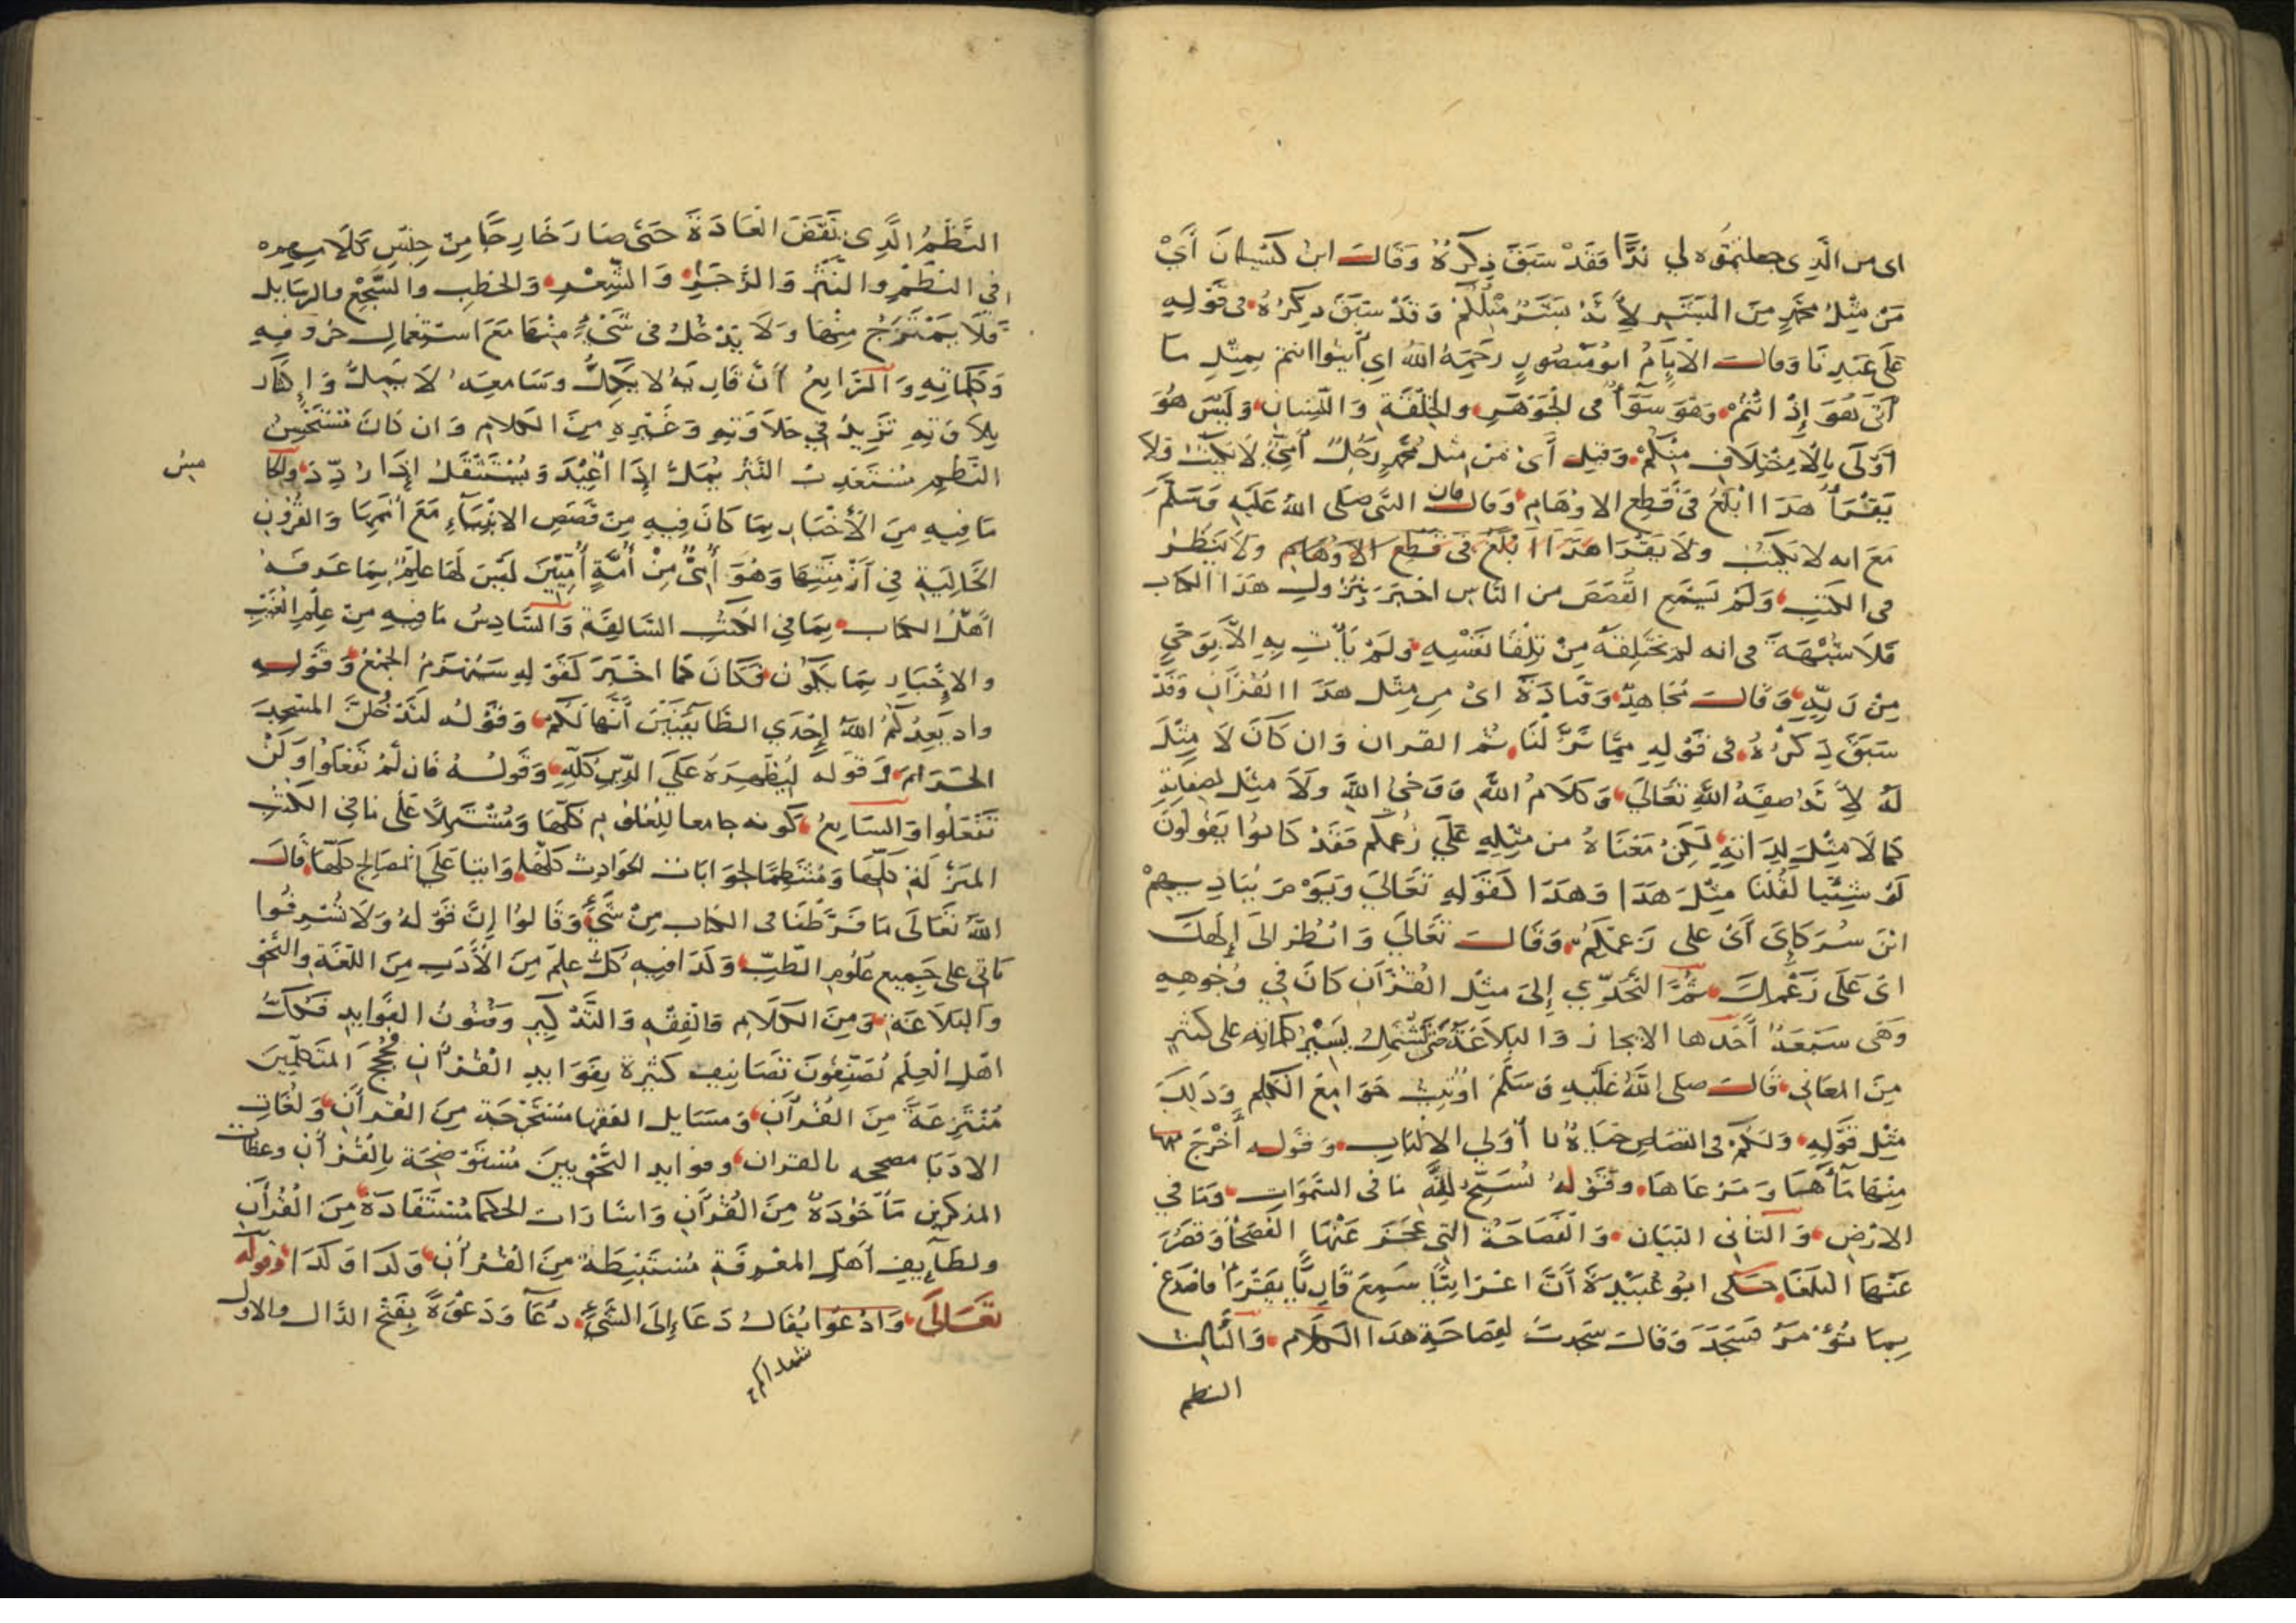 اى من الَّذِى جعلتمُوه لي نِدًّا فَقَدْ سَبَقَ ذِكرُهُ وَقَالَ ابن كَيْسَانَ أَيْ
مَنْ مِثْلُ مُحَمَّدٍ مِنَ الْبَشَرِ لِأَنَّهُ بَشَرٌ مِثْلُكُمْ وَقَدْ سَبَقَ ذِكرُهُ فى قَوْلِهِ
عَلَى عَبْدِنَا وَقالَ الْاِمَامُ ابُو مَنْصُورٍ رَحِمَهُ اللهُ اي أْيتُوا انتمْ بِمِثْلِ مَا
أَتَى هُوَ إِذْ انْتُمْ وَهُوَ سَوَآءٌ فى الْجَوْهَرِ والْخِلْقَةِ وَاللِّسَانِ وَلَيْسَ هُوَ
أَوْلَى بِالْاِخْتِلَافِ مِنْكُمْ وَقِيلَ أَىْ مَنْ مثل مُحَمَّدٍ رَجُلٌ أُمِّيٌّ لَا يَكْتُبُ وَلَا
يَقْرَأُ هَذَا ابْلَغُ فى قَطْعِ الاوْهَامِ وَقالَ فان النَّبى صلى اللهُ عَلَيْهِ وَسَلَّمَ
مَعَ انه لا يَكْتُبُ ولَا يَقْرَا هَذَا ابْلَغُ فى قَطْعِ الاَوْهَامِ ولَا يَنظُرُ
فى الكتبِ وَلَمْ يَسْمَعِ القَصَصَ من النَّاسِ اخْبَرَ بِنُزُولِ هَذَا الكتاب
فَلَا شُبْهَةَ فى انه لم يَخْتَلِقْهُ مِنْ تِلْقَا نَفْسِهِ وَلَمْ يَأْتِ بِهِ اِلَّا بِوَحْيٍ
مِنْ رَبِّهِ وَقَالَ مُجَاهِدٌ وَقَتَادَةُ اىْ من مِثْلِ هَذَا الْقُرْآنِ وَقَدْ
سَبَقَ ذِكْرُهُ فى قَوْلِهِ مِمَّا نَزَّلْنَا ثم القران وَان كَانَ لَا مِثْلَ
لَهُ لِأَنَّهُ صِفَةُ اللهِ تَعَالَى وَكَلَامُ اللهِ وَوَحْيُ اللهِ وَلَا مِثْلَ لصِفَاتِهِ
كَمَا لَا مِثْلَ لِذَاتِهِ لَكِنْ مَعْنَاهُ من مِثْلِهِ عَلَى زَعْمِكُمْ فَقَدْ كَانُوا يَقُولُونَ
لَوْ شِيْنَا لَقُلْنَا مِثْلَ هَذَا وَهَذَا كَقَوْلِهِ تَعَالَى وَيَوْمَ يُنَادِيهِمْ
ايْنَ شُرَكَاىَ أَىْ على زَعْمِكُمْ وَقَالَ تَعَالَى وَانْظُرْ الى إِلَهِكَ
اىْ عَلَى زَعْمِكَ ثُمَّ التَّحَدِّي إِلَى مِثْلِ الْقُرْآنِ كَانَ فِي وُجُوهِهِ
وَهَى سَبْعَةٌ أَحَدُها الايجاز وَالبَلَاغَةُ يَشْتَمِلُ يَسِيْرُ كلماتِه على كَثِيْرٍ
مِنَ المعَانِى قَالَ صلى اللهُ عَلَيْهِ وَسَلَّمَ اوُتِيتُ جَوَامِعَ الْكَلِمِ وَذَلِكَ
مِثْل قَوْلِهِ وَلَكُمْ فى القصَاصِ حَيَاةٌ يا أُولِي الالْبَابِ وَقَوْلِهِ أَخْرَجَ
مِنْهَا مَآءَهَا وَمَرْعَاهَا وَقَوْلهُ يُسَبِّحُ لِلَّهِ مَا فى السَّمَوَاتِ وَمَا فِي
الارْضِ وَالثانى البَيَان وَالْفَصَاحَةُ التِى عَجَزَ عَنْهَا الْفُصَحَا وَقَصُرَ
عَنْهَا الْبُلَغَا حَكى ابُو عُبَيْدَةَ أَنَّ اعْرَابِيًّا سَمِعَ قَارِيًّا يَقْرَأ فاصْدَعْ
بِمَا تُؤْمَرُ فسَجَدَ وَقَالَ سَجَدتُ لِفَصَاحَةِ هَذَا الْكَلَامِ وَالثَّالِثُ
النظم
النَّظْمُ الَّذِى نَقَضَ الْعَادَةَ حَتَّى صَارَ خَارِجًا مِنْ جِنْسِ كَلَامِهِمْ
فِى النَظْمِ والنَّثْرِ وَالرَّجَزِ وَالشِّعْرِ وَالخطب والسَّجْعِ والرسَايل
فَلَا يَمْتَزِجُ مِنْهَا وَلَا يَدْخُلُ فى شَىْءٍ مِنْهَا مَعَ اسْتِعْمَالِ حُرُوفِهِ
وَكَلِمَاتِهِ وَالرَّابِعُ أَنَّ قَارِيَهُ لا يَكِلُّ وسَامِعَهُ لَا يَمِلُّ وَإِكثَار
تِلَاوَتِهِ تَزِيدُ فِي حَلَاوَتِهِ وَغَيْرِهِ مِنَ الكلامِ وَان كَانَ مُسْتَحْسَنُ
النَّظْمِ مُسْتَعْذَبُ النَّثْرِ يُمَلُّ إِذَا اُعِيْدَ وَيُسْتَثْقَلُ إِذَا رُدِّدَ وَالخا
مِسُ
مَا فِيهِ مِنَ الْأَخْبَارِ بِمَا كَانَ فِيهِ مِنْ قَصَصِ الانْبِيَآءِ مَعَ أُمَمِهَا وَالْقُرُونِ
الْخَالِيَةِ فِي اَزْمِنَتِهَا وَهُوَ أُمِّىٌّ مِنْ أُمَّةٍ أُمِّيِّيْنَ لَيْسَ لَهَا عِلْمٌ بِمَا عَرَفَهُ
اَهْلُ الكتاب بِمَا فِي الكُتُبِ السَّالِفَةِ وَالسَّادِسُ مَا فِيهِ مِنْ عِلْمِ الْغَيْبِ
والاِخْبَارِ بِمَا يَكُون فَكَانَ كَمَا اخْبَرَ كَقَوْلِهِ سَيُهْزَمُ الجَمْعُ وَقَوْلِهِ
واذ يَعِدُكُمُ اللهُ إِحْدَي الطَّائِفَتَيْنَ أَنَّهَا لَكُمْ وَقَوْلُه لَتَدْخُلُنَّ المَسْجِدَ
الْحَرَامَ وَقَوله لِيُظْهِرَهُ عَلَى الدِّينِ كُلِّهِ وَقَولُهُ فَان لَمْ تَفْعَلُوا وَلَنْ
تَفْعَلُوا وَالسَابِعُ كَونه جامعا لِلْعُلُومِ كُلِّهَا وَمُشْتَمِلًا عَلَى مَا فِي الكُتُبِ
المنَزَّلَةِ كُلِّهَا وَمُنتَظِمًا لجوَابَات الحَوَادِثِ كُلِّهَا وَاتيا عَلَى المَصَالحِ كُلِّهَا قَالَ
اللهُ تَعَالَى مَا فَرَّطْنَا فى الكتاب مِنْ شَىْءٍ وَقَالوُا إِنَّ قَوْلهُ وَلَا تُسْرِفُوا
يَاتِى على جَمِيعِ عُلُومِ الطِّبِّ وَكَذَا فيهِ كُلُّ عِلْمٍ مِنَ الْأَدَبِ مِنَ اللُّغَةِ والنَّحْوِ
وَالبَلَاغَةِ وَمِنَ الْكَلَامِ وَالْفِقْهِ وَالتَّذْكِيرِ وَفُنُونُ الفَوَايِدِ فَكُلُّ
اهْلِ الْعِلْمِ يُصَنِّفُونَ تَصَانِيفَ كَثِيْرَةً بِفَوَايِدِ الْقُرْآنِ فَحُجَجُ المتَكَلِّمِيْنَ
مُنْتَزَعَةٌ مِنَ الْقُرْآنِ وَمَسَايِلُ الفقهَا مُسْتَخْرَجَة مِنَ القُرآنِ وَلُغَاتِ
الادَبَا مصححه بالقران وفوايد النَّحْوِيِّينَ مُسْتَوْضَحَة بِالْقُرْآنِ وعظات
المذكرين مَأْخُوذَةٌ مِنَ الْقُرْآنِ وَاشَارَات الحكما مُسْتَفَادَةٌ مِنَ الْقُرْآنِ
ولَطَآيِفِ أَهْلِ المَعْرِفَةِ مُسْتَنْبَطَةٌ مِنَ الْقُرْآنِ وَكَذَا وَكَذَا وَقَولُه
تَعَالَى وَادْعُوا يُقَالُ دَعَا إِلَى الشَّىْءِ دُعَآ وَدَعْوَةً بِفَتْحِ الدَّالِ والاول
شهداكم